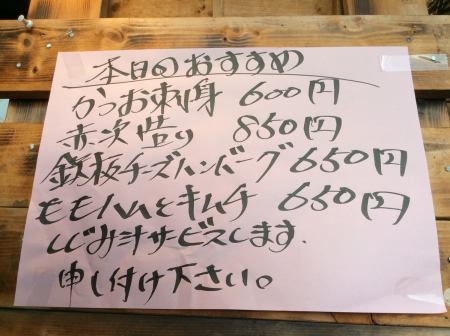 本日のおすすめ
かつお刺身 600円
赤次造り 850円
鉄板チーズハンバーグ 650円
モモハムとキムチ 650円
しじみ汁サービスします.
申し付け下さい。